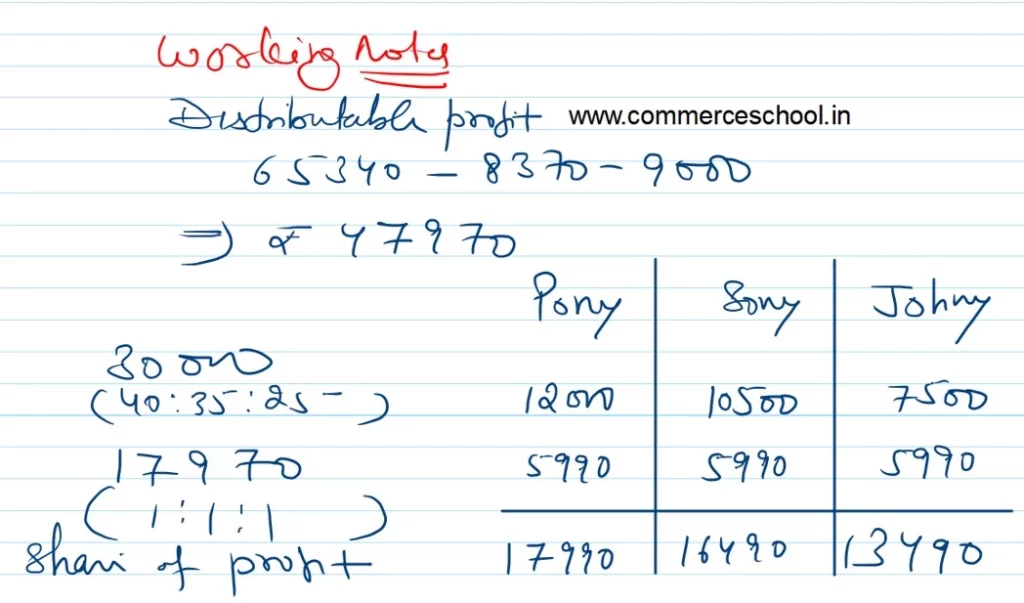 Working Notes
Distributable profit www.commerceschool.in
65340 - 8370 - 9000
⇒ ₹ 47970
Pony Sony Johny
30000
(40:35:25) 12000 10500 7500
17970 5990 5990 5990
(1:1:1)
Share of profit 17990 16490 13490